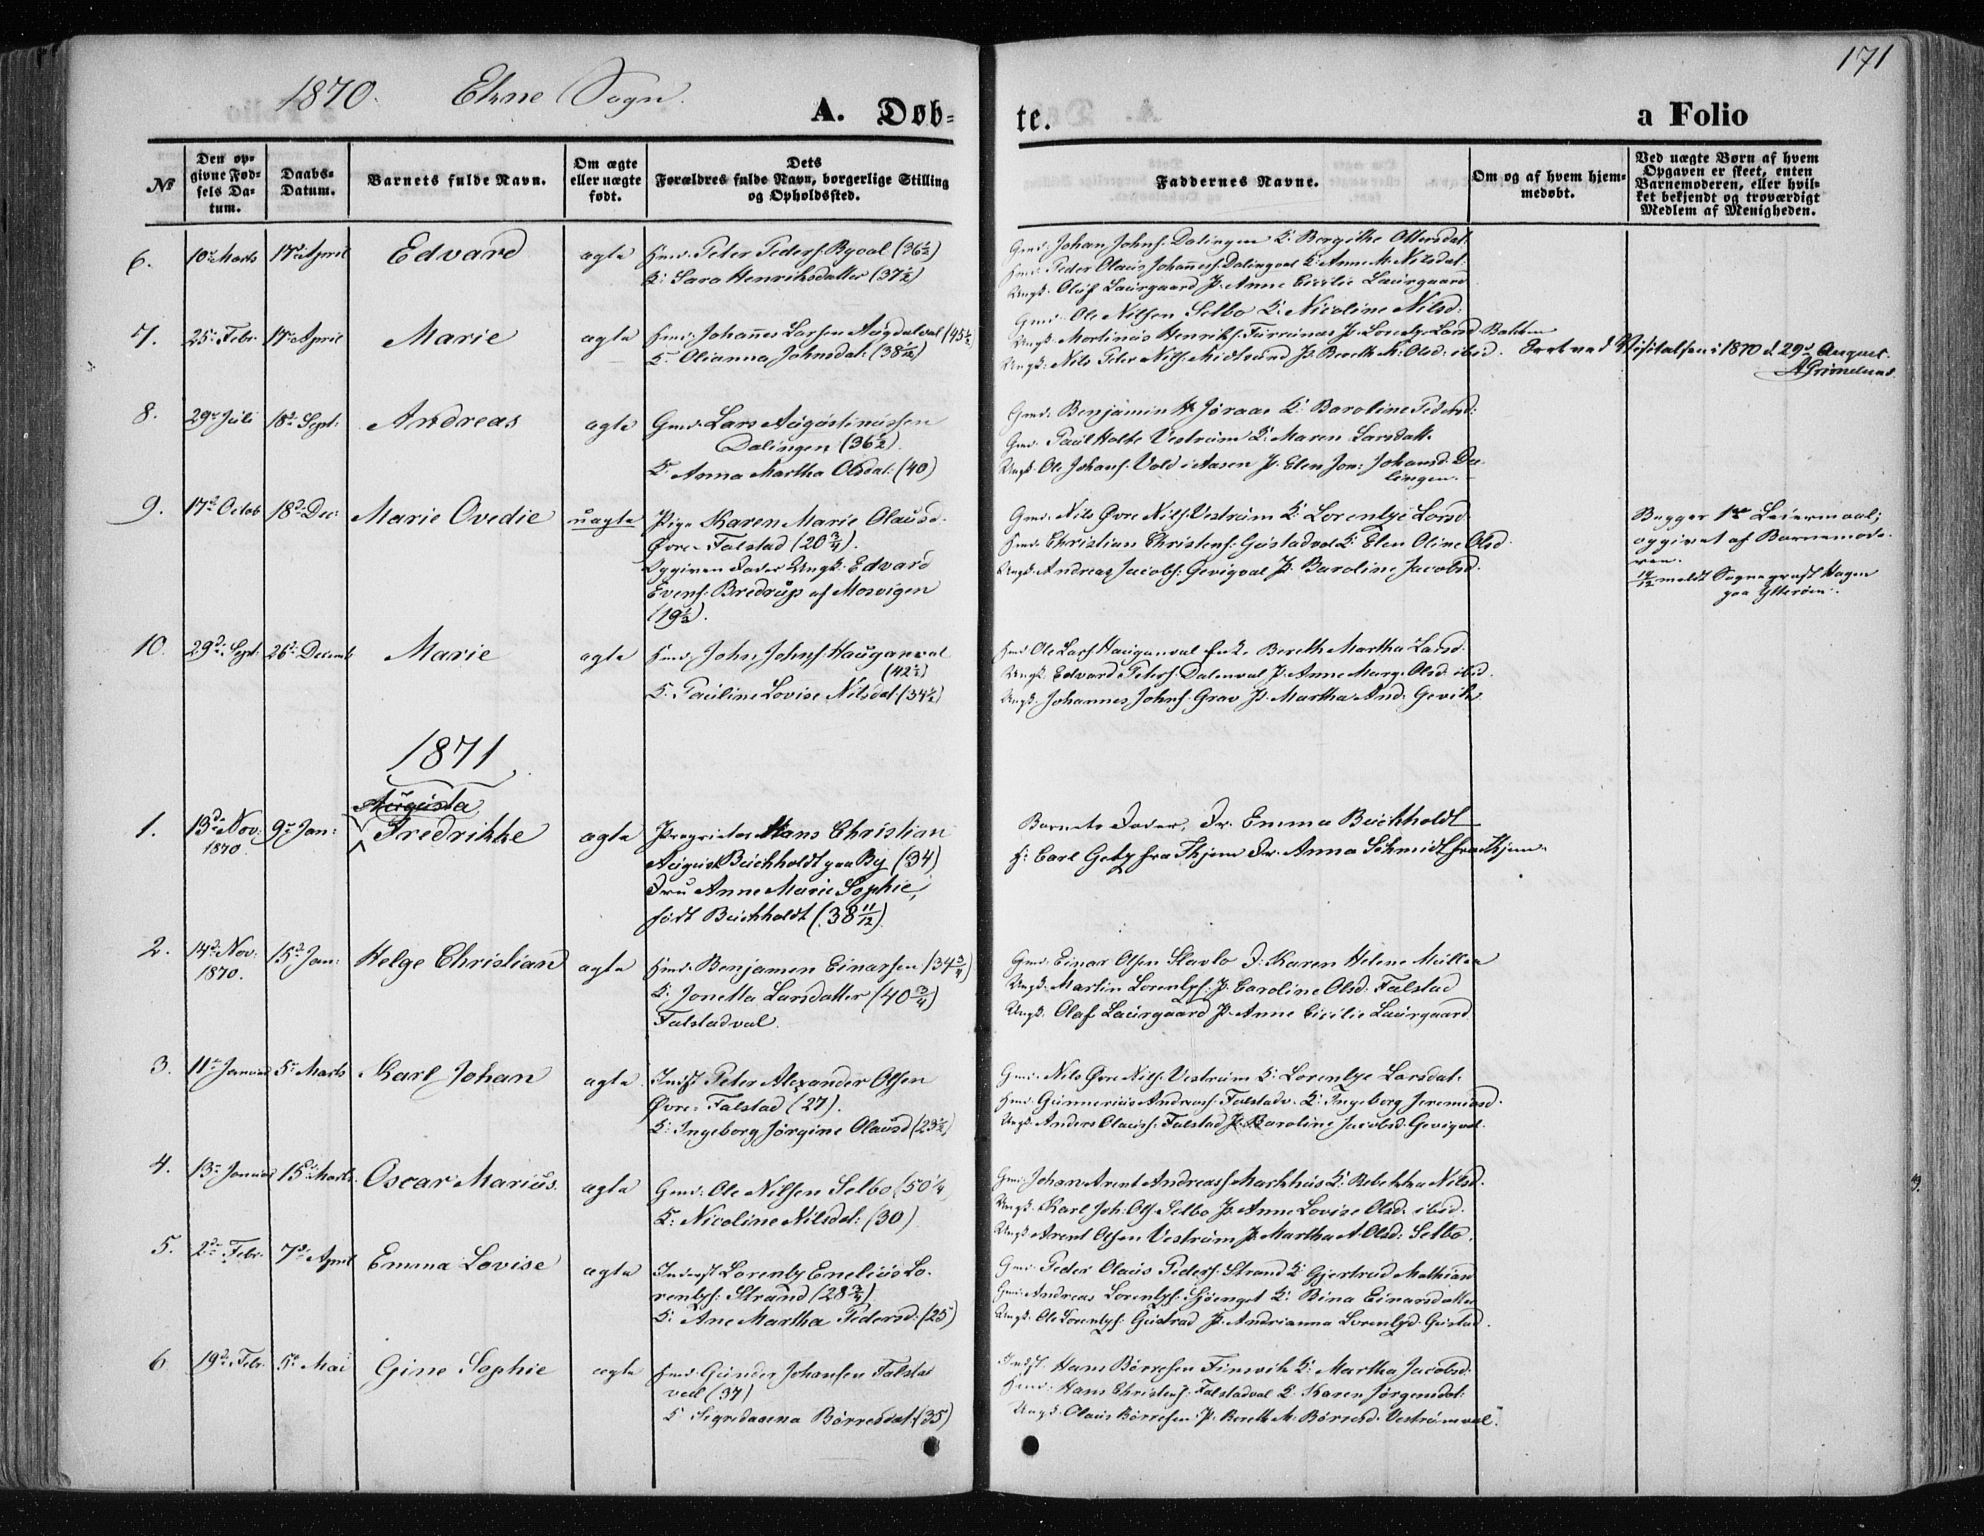 171
1870. Ekne Sogn.
A. Døb-
te.
a Folio
№
Den op-
givne Fød-
sels Da-
tum.
Daabs-
Datum.
Barnets fulde Navn.
Om ægte
eller uægte
født.
Dets
Forældres fulde Navn, borgerlige Stilling
og Opholdssted.
Faddernes Navne.
Om og af hvem hjem-
medøbt.
Ved uægte Børn af hvem
Opgaven er skeet, enten
Barnemoderen, eller hvil-
ket bekjendt og troværdigt
Medlem af Menigheden.
6. 10de Marts 17de April Edvard ægte Hmd. Peter Peders. Byval (36½)
K: Sara Henriksdatter (37½)
Gmd. Johan Johns. Dalingen K: Bergithe Ottersdat.
Hmd. Peder Olaus Johannes. Dalingval K: Anne M. Nilsdat.
Ungk. Oluf Laurgaard P. Anne Cicilie Laurgaard
7. 25. Febr. 17de April Marie ægte Hmd. Johannes Larsen Augdalval (45½)
K. Olianna Johnsdat. (38½)
Gmd. Ole Nilsen Selbo K. Nicoline Nilsd.
Ungk. Martinus Henriks. P. Larsd. Bakken
Ungk. Nils Peter Nils. P. Bereth M. Olsd. ibid.
Seet ved Visitatsen i 1870 d. 29d August.
A Grimelund.
8. 29de Juli 18de Sept. Andreas ægte Gmd. Lars Augustinussen
Dalingen (36½)
K. Anna Martha Olsdat. (40)
Gmd. Benjamin H. Joraas K: Baroline Pedersd:
Gmd. Paul Holte Vestrum K: Maren Larsdatt.
Ungk. Ole Johans: Vold i Aasen P. Elen Jon: Johansd. Da-
lingen.
9. 17de Octob 18de Dec: Marie Ovedie uægte Pige Karen Marie Olausd.
Øvre-Falstad (20¾).
Opgiven Fader Ungk: Edvard
Evens. Bredrup af Mosvigen
(19½).
Gmd. Nils Øvre Nils. Vestrum K: Lorentze Larsd.
Hmd. Christian Christens: Gustadval K: Elen Oline Olsd.
Ungk. Andreas Jacobs: Gevigval P. Baroline Jacobsd.
Begges 1ste Leiermaal;
opgivet af Barnemode-
ren.
19/12 meldt Sognepræst Hagen
paa Ytterøen.
10. 29de Sept. 26de Decemb Marie ægte Hmd. John Johns. Hauganval
(42½)
K. Pauline Lovise Nilsdat (34½)
Hmd Ole Lars Hauganval Enk. Bereth Martha Larsd.
Ungk. Edvard Peters. Dalenval P. Anne Marg. Olsd. ibid.
Ungk. Johannes Johns. Grav P. Martha And. Gevik
1871
Augusta
1. 13de Nov: 1870. 9de Jan: Fredrikke ægte Proprietær Hans Christian
August Buchholdt paa By (34)
Fru Anne Marie Sophie,
født Buchholdt (38 11/12)
Barnets Fader, Fr. Emma Buchholdt
H: Carl Getz fra Thjem Fr. Anna Schmidt fra Thjem.
2. 14de Nov: 1870. 15de Jan: Helge Christian ægte Hmd. Benjamen Einarsen (34¾)
K: Jonetta Larsdatter (40¾)
Falstadval.
Gmd. Einar Olsen Slavlo J. Karen Helene Müller
Ungk. Martin Lorents. P. Caroline Olsd. Falstad
Ungk. Olaf Laurgaard P. Anne Cicilie Laurgaard
3. 11te Januar 5te Marts Karl Johan ægte Indst Peter Alexander Olsen
Øvre-Falstad (27).
K: Ingeborg Jørgine Olausd (23½)
Gmd. Nils Øvre Nils. Vestrum K: Lorentze Larsdat.
Hmd. Gunnerius Andreas. Falstadv. K. Ingeborg Jeremiasd.
Ungk. Anders Olauss. Falstad P. Baroline Jacobsd. Gevigval.
4. 13de Januar 15de Marts Oscar Marius ægte Gmd: Ole Nilsen Selbo (50¼)
K: Nicoline Nilsdat: (30)
Gmd. Johan Arent Andreass Markhus K: Rebekka Nilsd.
Ungk. Karl Joh: Ols. Selbo P. Anne Lovise Olsd. ibid.
Ungk. Arent Olsen Vestrum P. Martha A. Olsd. Selbo.
5. 2den Febr. 7de April Emma Lovise ægte Inderst Lorentz Enelius Lo-
rents: Strand (28¾)
K: Ane Martha Pedersd: (25)
Gmd. Peder Olaus Peders. Strand K Gjertrud Mathiasd
Gmd. Andreas Lorents. Sjøenget K: Bina Einarsdatter
Ungk. Ole Lorents: Gustad P. Andrianna Lorentsd. Gustad.
6 19de Feb. 5te Mai Gine Sophie ægte Hmd. Gunder Johansen Falstad
val (37)
K Børresdat. (35)
Indst. Hans Børresen Finsvik K: Martha Jacobsd.
Hmd. Hans Christens: Falstadval K. Karen Jørgensdat.
Ungk. Olaus Børresen P. Bereth M. Børresd. Vestrumval.